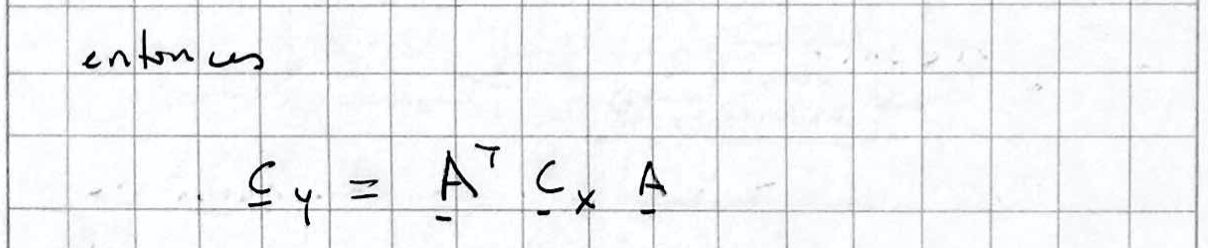 entonces
C̲_y = A̲^T C̲_x A̲